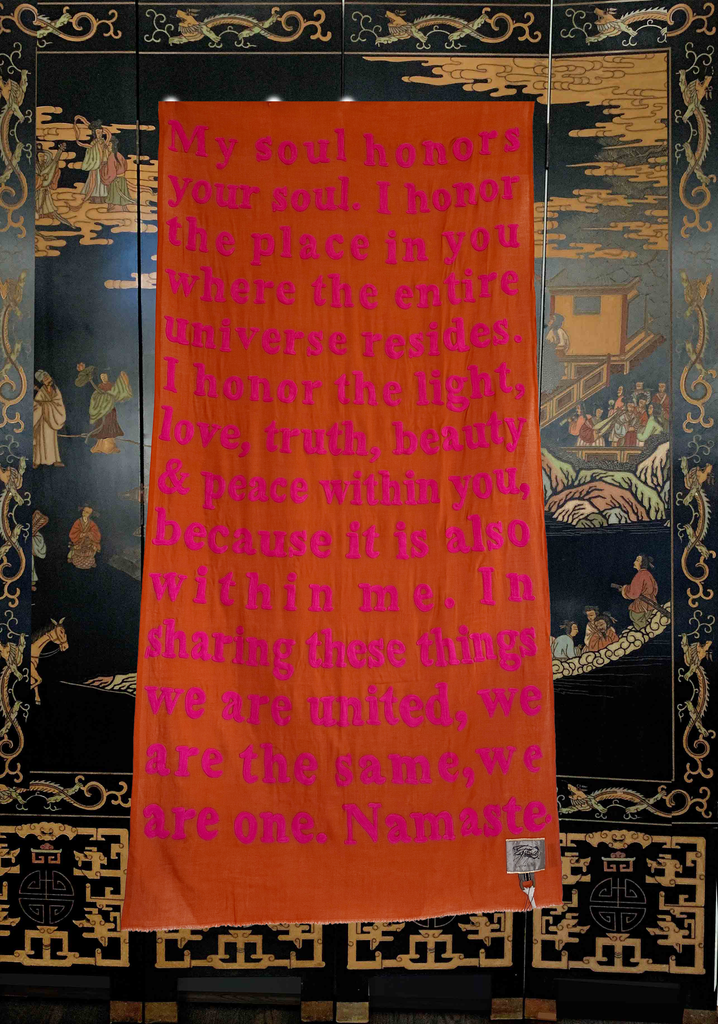 My soul honors
your soul. I honor
the place in you
where the entire
universe resides.
I honor the light,
love, truth, beauty
& peace within you,
because it is also
within me. In
sharing these things
we are united, we
are the same, we
are one. Namaste.